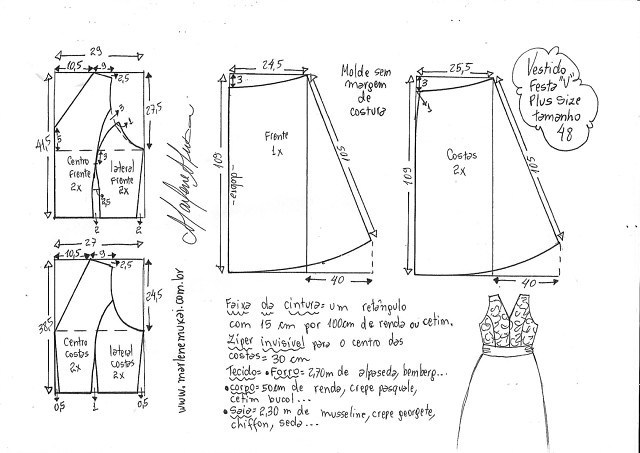 29
10,5
9
2,5
27,5
3
1
5
44,5
3
Centro
frente
2x
lateral
frente
2x
2,5
2
2
27
10,5
9
2,5
24,5
38,5
Centro
costas
2x
lateral
costas
2x
0,5
1
0,5
Marlene Mukai
www.marlenemukai.com.br
24,5
3
Frente
1x
109
-dobra-
105
40
Molde sem
margem
de
costura
25,5
3
1
Costas
2x
109
105
40
Vestido
Festa "V"
Plus Size
tamanho
48
Faixa da cintura= um retângulo
com 15 cm por 100cm de renda ou cetim.
Zíper invisível para o centro das
costas = 30 cm
Tecido= •Forro= 2,70m de alpaseda, bemberg...
•corpo= 50cm de renda, crepe pasquale,
cetim bucol...
•Saia= 2,30 m de musseline, crepe georgete,
chiffon, seda...